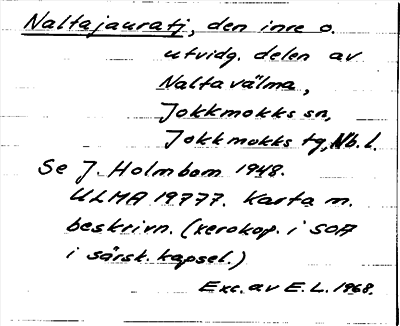 Naltajauratj, den inre o.
utvidg. delen av
Naltavälma,
Jokkmokks sn,
Jokkmokks tg, Nb. l.
Se J. Holmbom 1948.
ULMA 19777. Karta m.
beskrivn. (xerokop. i SOA
i särsk. kapsel.)
Exc. av E. L. 1968.